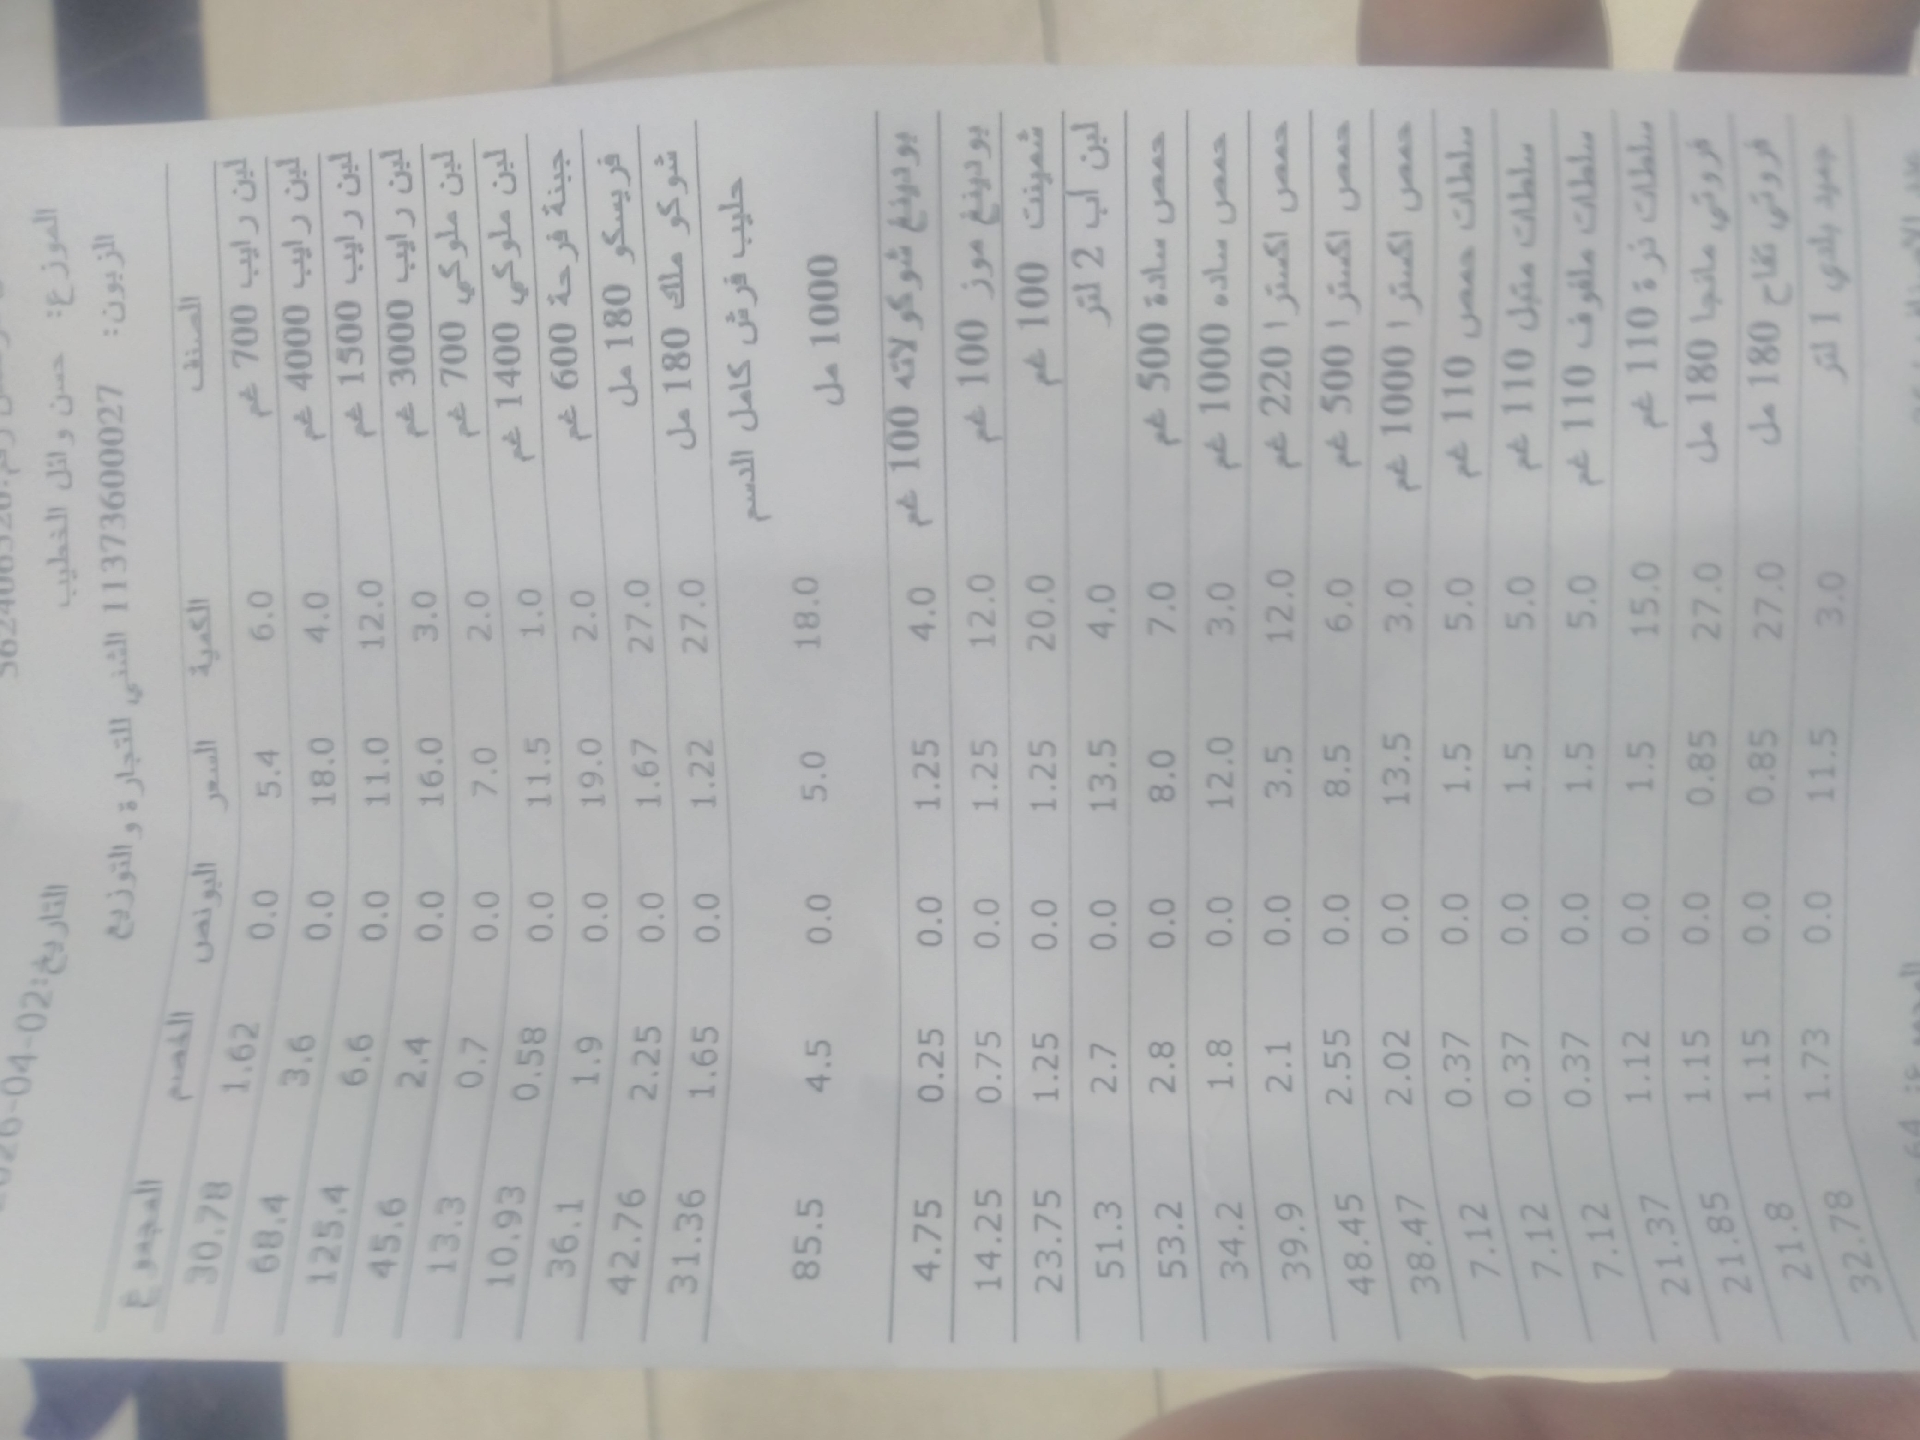 التاريخ:2026-04-02
الموزع: حسن وائل الخطيب
الزبون: 11373600027 الشني للتجارة والتوزيع
الصنف الكمية السعر البونص الخصم المجموع
لبن رايب 700 غم 6.0 5.4 0.0 1.62 30.78
لبن رايب 4000 غم 4.0 18.0 0.0 3.6 68.4
لبن رايب 1500 غم 12.0 11.0 0.0 6.6 125.4
لبن رايب 3000 غم 3.0 16.0 0.0 2.4 45.6
لبن ملوكي 700 غم 2.0 7.0 0.0 0.7 13.3
لبن ملوكي 1400 غم 1.0 11.5 0.0 0.58 10.93
جبنة فرحة 600 غم 2.0 19.0 0.0 1.9 36.1
فريسكو 180 مل 27.0 1.67 0.0 2.25 42.76
شوكو ملك 180 مل 27.0 1.22 0.0 1.65 31.36
حليب فرش كامل الدسم
1000 مل 18.0 5.0 0.0 4.5 85.5
بودينغ شوكولاته 100 غم 4.0 1.25 0.0 0.25 4.75
بودينغ موز 100 غم 12.0 1.25 0.0 0.75 14.25
شمينت 100 غم 20.0 1.25 0.0 1.25 23.75
لبن اب 2 لتر 4.0 13.5 0.0 2.7 51.3
حمص سادة 500 غم 7.0 8.0 0.0 2.8 53.2
حمص ساده 1000 غم 3.0 12.0 0.0 1.8 34.2
حمص اكسترا 220 غم 12.0 3.5 0.0 2.1 39.9
حمص اكسترا 500 غم 6.0 8.5 0.0 2.55 48.45
حمص اكسترا 1000 غم 3.0 13.5 0.0 2.02 38.47
سلطات حمص 110 غم 5.0 1.5 0.0 0.37 7.12
سلطات متبل 110 غم 5.0 1.5 0.0 0.37 7.12
سلطات ملفوف 110 غم 5.0 1.5 0.0 0.37 7.12
سلطات ذرة 110 غم 15.0 1.5 0.0 1.12 21.37
فروتي مانجا 180 مل 27.0 0.85 0.0 1.15 21.85
فروتي تفاح 180 مل 27.0 0.85 0.0 1.15 21.8
جميد بلدي 1 لتر 3.0 11.5 0.0 1.73 32.78